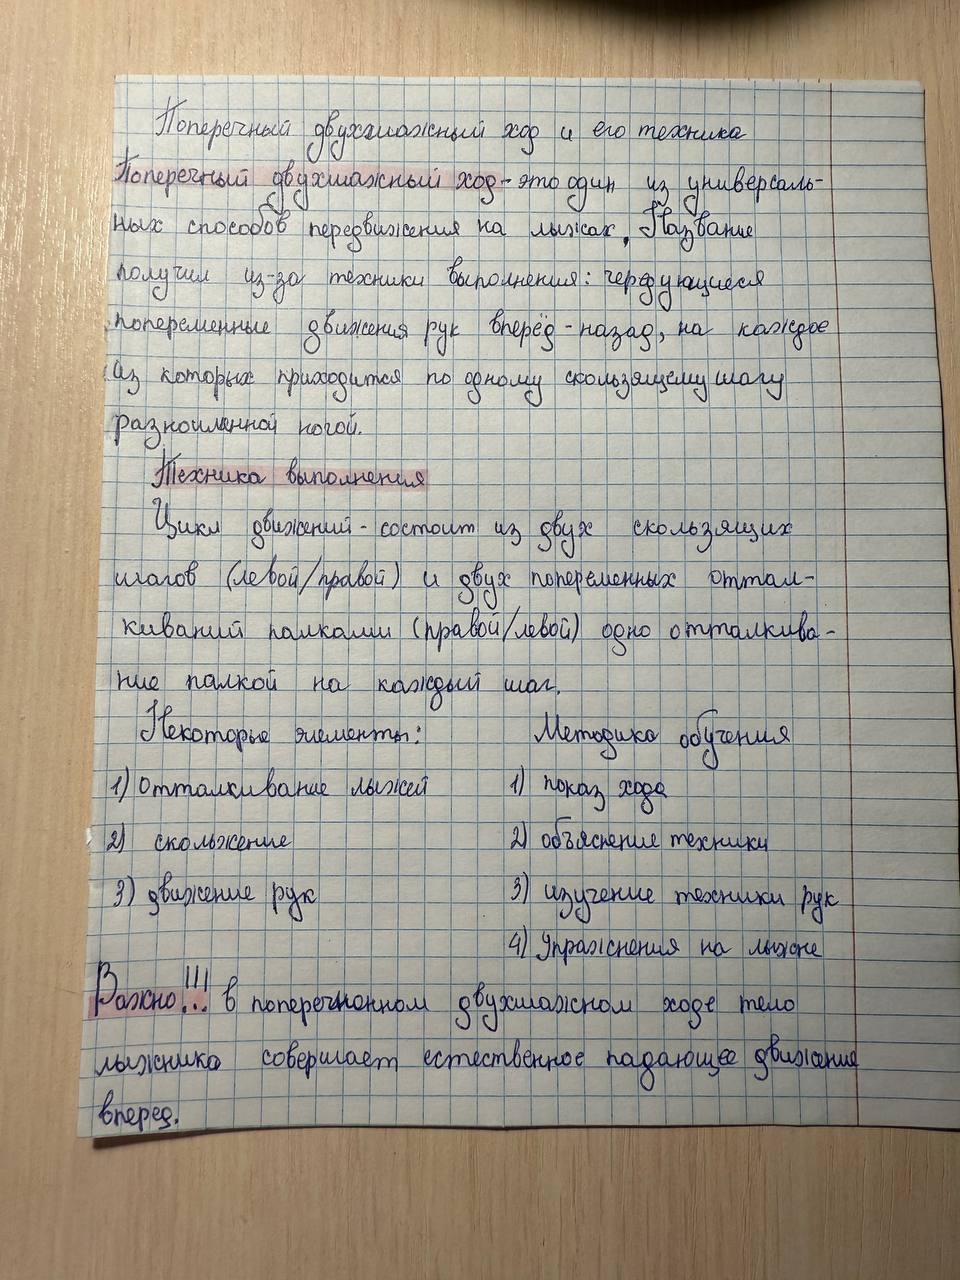 Поперечный двухшажный ход и его техника
Поперечный двухшажный ход - это один из универсаль-
ных способов передвижения на лыжах. Название
получил из-за техники выполнения: чередующиеся
попеременные движения рук вперёд-назад, на каждое
из которых приходится по одному скользящему шагу
разноименной ногой.
Техника выполнения
Цикл движений - состоит из двух скользящих
шагов (левой/правой) и двух попеременных оттал-
киваний палками (правой/левой) одно отталкива-
ние палкой на каждый шаг.
Некоторые элементы:
1) Отталкивание лыжей
2) скольжение
3) движение рук
Методика обучения
1) показ хода
2) объяснение техники
3) изучение техники рук
4) Упражнения на лыжне
Важно!!! в поперечнонном двухшажном ходе тело
лыжника совершает естественное падающее движение
вперед.